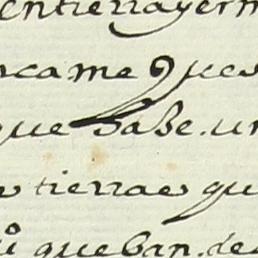 entierra yerm
came ques
que sabe. un
tierras qu
que ban. des